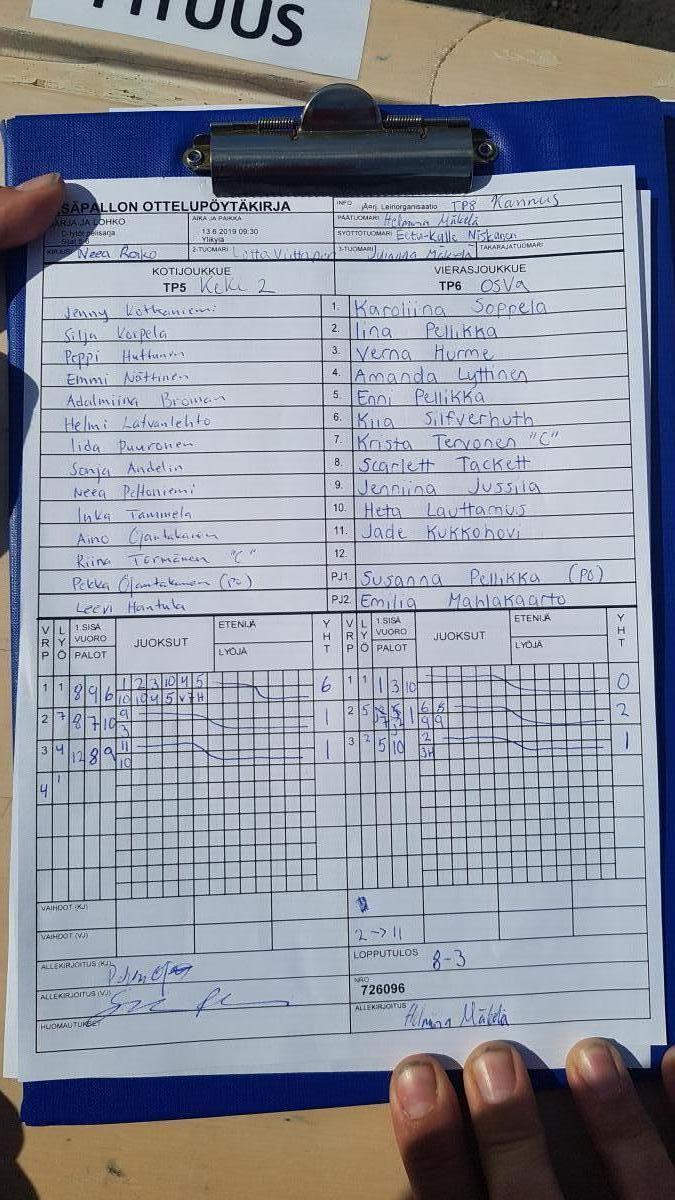 PITUUS
SÄPALLON OTTELUPÖYTÄKIRJA
INFO Aarj. Leiriorganisaatio TP8 Kannus
SARJA JA LOHKO
D-tytöt pelisarja
Sijat 5-8
AIKA JA PAIKKA
13.6.2019 09:30
Ylikylä
PÄÄTUOMARI Helmina Mäkelä
SYÖTTÖTUOMARI Eetu-Kylle Niskanen
KIRJURI Neea Rasko
2-TUOMARI Lotta Viittanen
3-TUOMARI Julianna Mäkelä
TAKARAJATUOMARI
KOTIJOUKKUE
TP5 KeKi 2
VIERASJOUKKUE
TP6 OSVa
Jenny Kotkaniemi 1. Karoliina Soppela
Silja Korpela 2. Iina Pellikka
Peppi Huttunen 3. Verna Hurme
Emmi Nättinen 4. Amanda Lyttinen
Adalmiina Broman 5. Enni Pellikka
Helmi Latvanlehto 6. Kiia Silfverhuth
Iida Puuronen 7. Krista Tervonen "C"
Sonja Andelin 8. Scarlett Tackett
Neea Peltoniemi 9. Jenniina Jussila
Inka Tammela 10. Heta Lauttamus
Aino Ojantakanen 11. Jade Kukkohovi
Riina Törmänen "C" 12.
Pekka Ojantakanen (PO) PJ1. Susanna Pellikka (PO)
Leevi Hantula PJ2. Emilia Mahlakaarto
VRP LYÖ 1.SISÄ VUORO PALOT JUOKSUT ETENIJÄ LYÖJÄ YHT VRP LYÖ 1.SISÄ VUORO PALOT JUOKSUT ETENIJÄ LYÖJÄ YHT
1 1 8 9 6 1 2 3 10 4 5 6 1 1 1 3 10 0
10 10 4 5 V 7H
2 7 8 7 10 9 1 2 5 1 6 5 2
3 9 9
3 4 12 8 9 11 1 3 2 5 10 2 1
10 3H
4 1
VAIHDOT (KJ)
VAIHDOT (VJ) 2→11
ALLEKIRJOITUS (KJ)
LOPPUTULOS 8-3
ALLEKIRJOITUS (VJ)
NRO
726096
HUOMAUTUKSET
ALLEKIRJOITUS Helmina Mäkelä